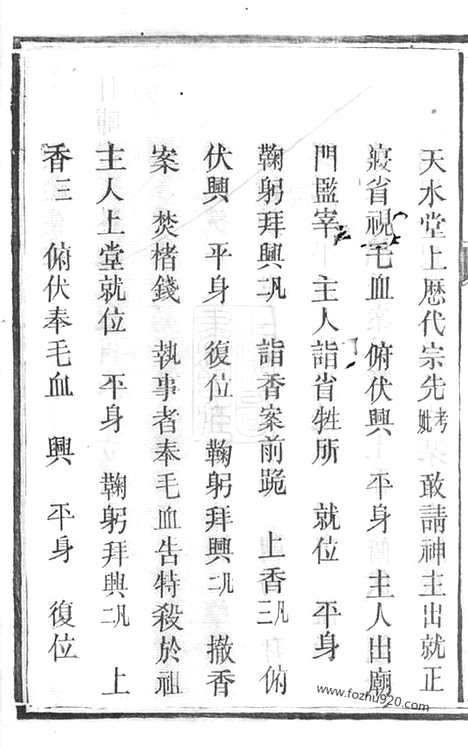 天水堂上歷代宗先考妣　敢請神主出就正
寢省視毛血　俯伏興　平身　主人出廟
門監宰　主人詣省牲所　就位　平身
鞠躬拜興凡二　詣香案前跪　上香凡三　俯
伏興　平身　復位　鞠躬拜興凡二　撤香
案　焚楮錢　執事者奉毛血告特殺於祖
主人上堂就位　平身　鞠躬拜興凡二　上
香三　俯伏奉毛血　興　平身　復位
www.fozhu920.com